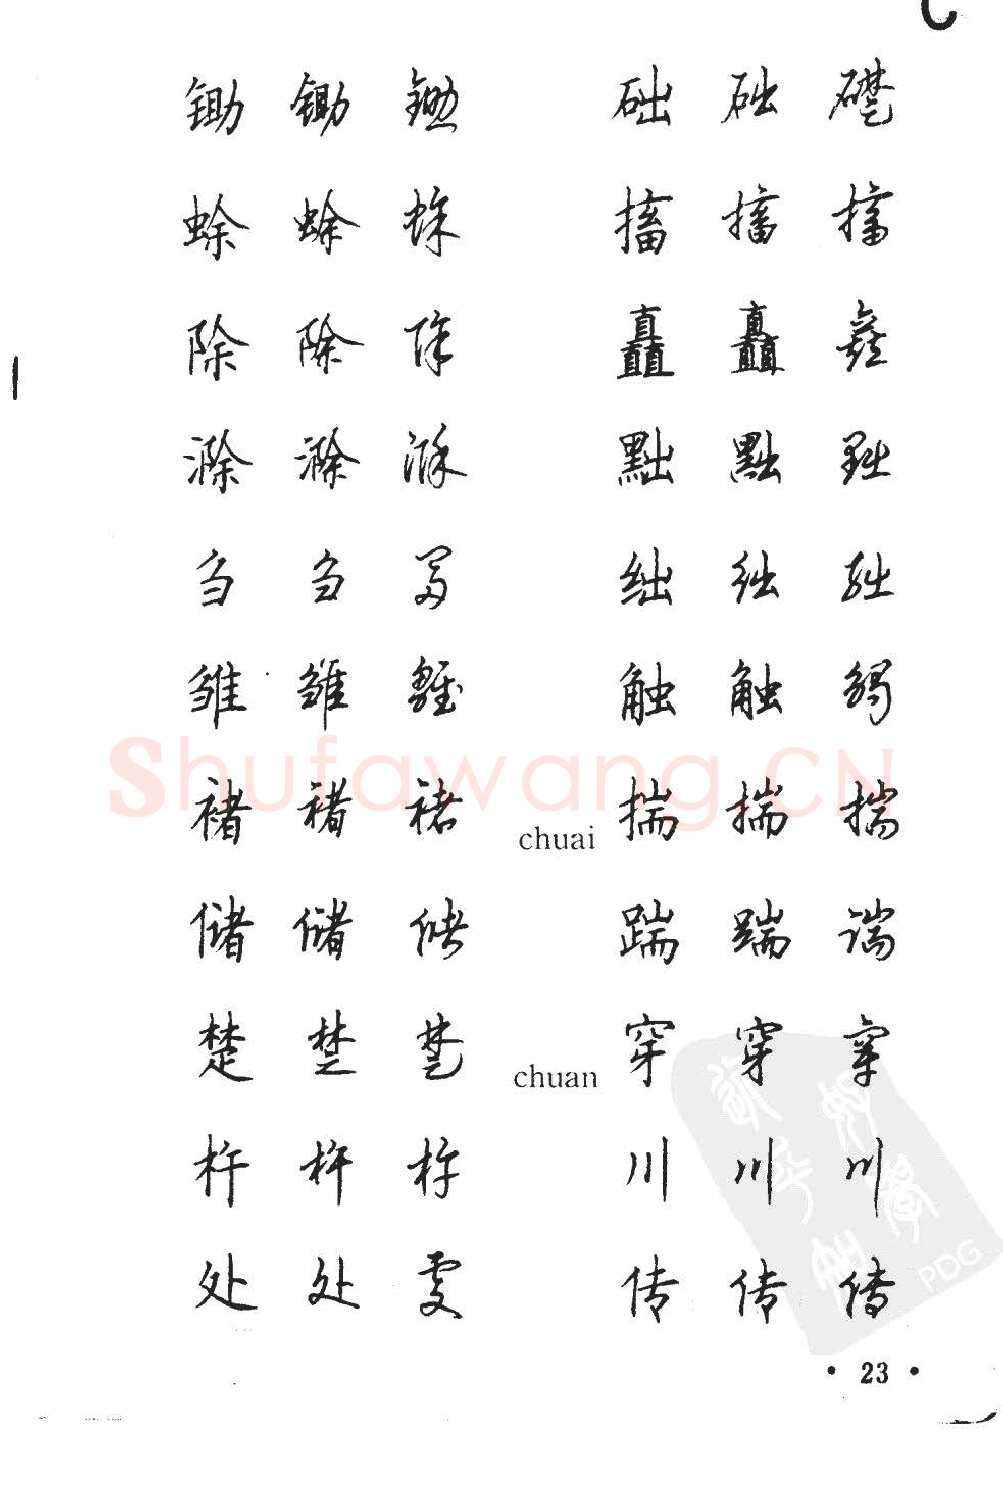 锄 锄 锄
蜍 蜍 蜍
除 除 除
滁 滁 滁
刍 刍 芻
雏 雏 雛
褚 褚 褚
储 储 储
楚 楚 楚
杵 杵 杵
处 处 處
础 础 礎
搐 搐 搐
矗 矗 矗
黜 黜 黜
绌 绌 绌
触 触 觸
chuai 揣 揣 揣
踹 踹 踹
chuan 穿 穿 穿
川 川 川
传 传 傳
· 23 ·
Shufawang.CN
PDG